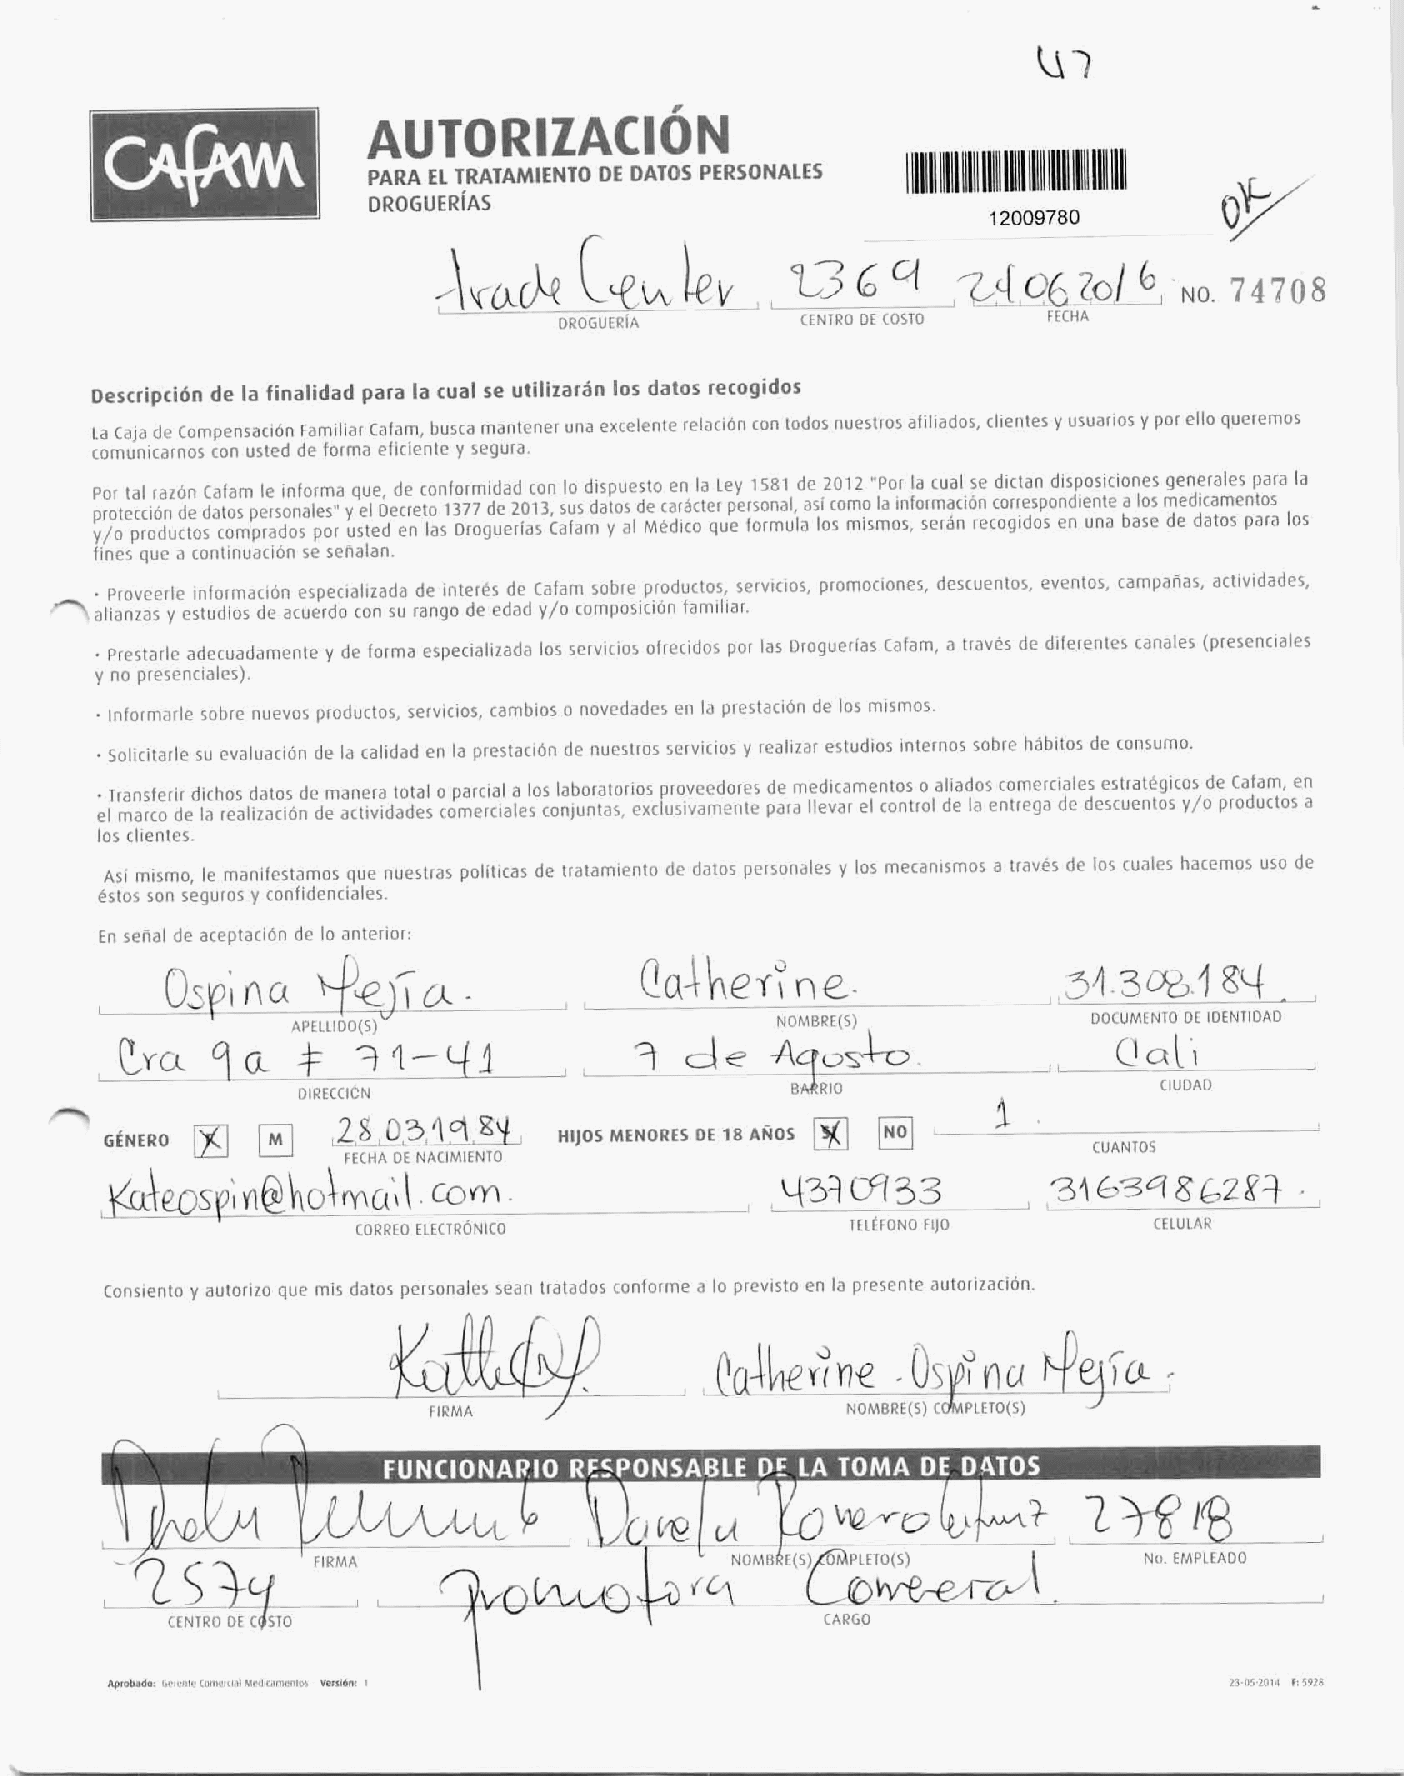 47
CAFAM
AUTORIZACIÓN
PARA EL TRATAMIENTO DE DATOS PERSONALES
DROGUERÍAS
12009780
OK
trade Center 2369 24062016 NO. 74708
DROGUERÍA CENTRO DE COSTO FECHA
Descripción de la finalidad para la cual se utilizarán los datos recogidos
La Caja de Compensación Familiar Cafam, busca mantener una excelente relación con todos nuestros afiliados, clientes y usuarios y por ello queremos
comunicarnos con usted de forma eficiente y segura.
Por tal razón Cafam le informa que, de conformidad con lo dispuesto en la Ley 1581 de 2012 "Por la cual se dictan disposiciones generales para la
protección de datos personales" y el Decreto 1377 de 2013, sus datos de carácter personal, así como la información correspondiente a los medicamentos
y/o productos comprados por usted en las Droguerías Cafam y al Médico que formula los mismos, serán recogidos en una base de datos para los
fines que a continuación se señalan.
· Proveerle información especializada de interés de Cafam sobre productos, servicios, promociones, descuentos, eventos, campañas, actividades,
alianzas y estudios de acuerdo con su rango de edad y/o composición familiar.
· Prestarle adecuadamente y de forma especializada los servicios ofrecidos por las Droguerías Cafam, a través de diferentes canales (presenciales
y no presenciales).
· Informarle sobre nuevos productos, servicios, cambios o novedades en la prestación de los mismos.
· Solicitarle su evaluación de la calidad en la prestación de nuestros servicios y realizar estudios internos sobre hábitos de consumo.
· Transferir dichos datos de manera total o parcial a los laboratorios proveedores de medicamentos o aliados comerciales estratégicos de Cafam, en
el marco de la realización de actividades comerciales conjuntas, exclusivamente para llevar el control de la entrega de descuentos y/o productos a
los clientes.
Así mismo, le manifestamos que nuestras políticas de tratamiento de datos personales y los mecanismos a través de los cuales hacemos uso de
éstos son seguros y confidenciales.
En señal de aceptación de lo anterior:
Ospina Mejía. Catherine. 31.308.184
APELLIDO(S) NOMBRE(S) DOCUMENTO DE IDENTIDAD
Cra 9a # 71-41 7 de Agosto. Cali
DIRECCIÓN BARRIO CIUDAD
GÉNERO X M 28.03.1984 HIJOS MENORES DE 18 AÑOS X NO 1.
FECHA DE NACIMIENTO CUANTOS
Kateospin@hotmail.com. 4370933 3163986287.
CORREO ELECTRÓNICO TELÉFONO FIJO CELULAR
Consiento y autorizo que mis datos personales sean tratados conforme a lo previsto en la presente autorización.
Catherine Ospina Mejía.
FIRMA NOMBRE(S) COMPLETO(S)
FUNCIONARIO RESPONSABLE DE LA TOMA DE DATOS
Romero 27818
FIRMA NOMBRE(S) COMPLETO(S) No. EMPLEADO
2574 Promotora
CENTRO DE COSTO CARGO
Aprobado: Gerente Comercial Medicamentos Versión: 1 23-05-2014 F: 5928